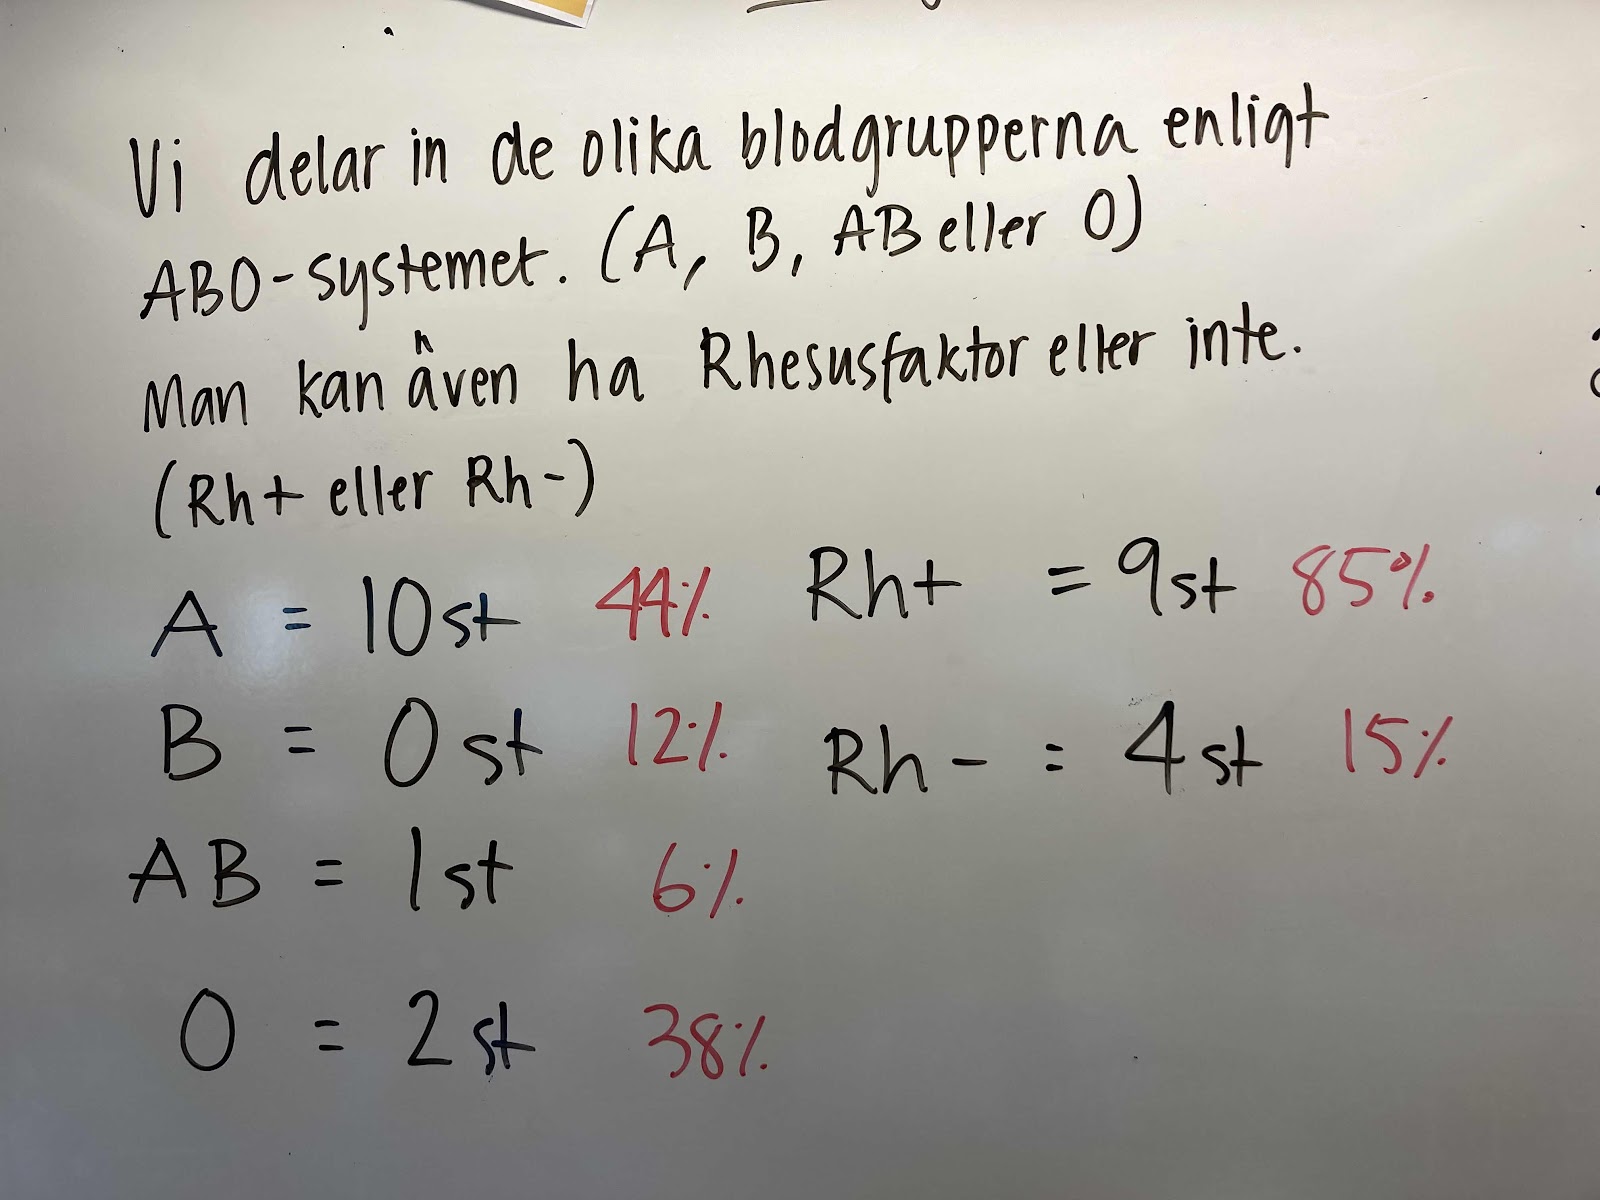 Vi delar in de olika blodgrupperna enligt
ABO-systemet. (A, B, AB eller O)
Man kan även ha Rhesusfaktor eller inte.
(Rh+ eller Rh-)
A = 10 st 44%
B = 0 st 12%
AB = 1 st 6%
O = 2 st 38%
Rh+ = 9 st 85%
Rh- = 4 st 15%